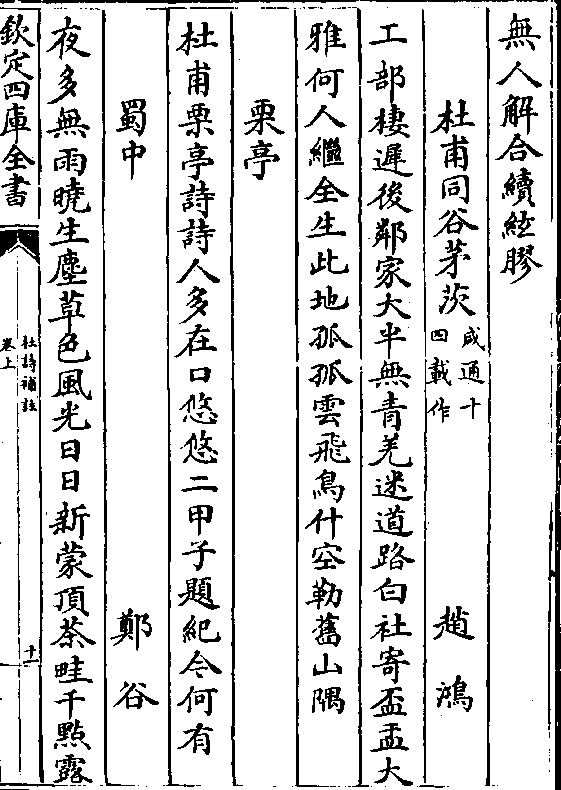 無人解合續絃膠
杜甫同谷茅茨咸通十四載作 趙鴻
工部棲遲後鄰家大半無青羌迷道路白社寄盃盂大
雅何人繼全生此地孤孤雲飛鳥什空勒舊山隅
栗亭
杜甫栗亭詩詩人多在口悠悠二甲子題紀今何有
蜀中 鄭谷
夜多無雨曉生塵草色嵐光日日新蒙頂茶畦千點露
欽定四庫全書
杜詩補註
卷上
十一